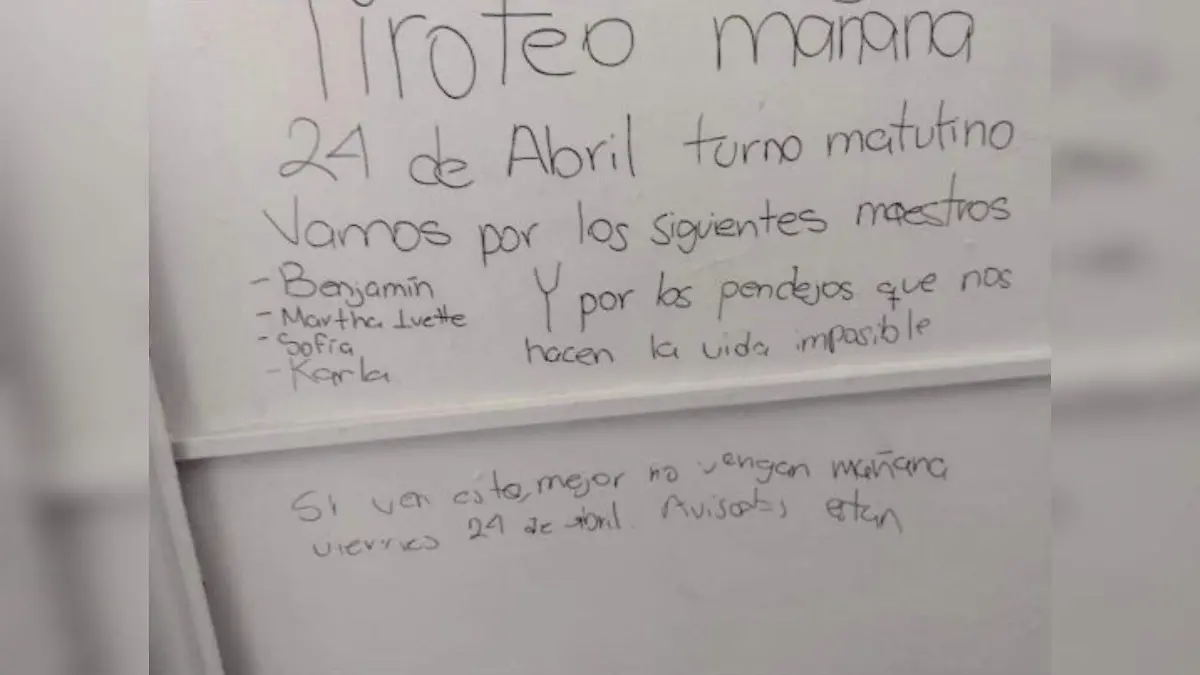 Tiroteo mañana
24 de Abril turno matutino
Vamos por los siguientes maestros
- Benjamín
- Martha Ivette
- Sofía
- Karla
Y por los pendejos que nos
hacen la vida imposible
Si ven esto, mejor no vengan mañana
viernes 24 de abril. Avisados están